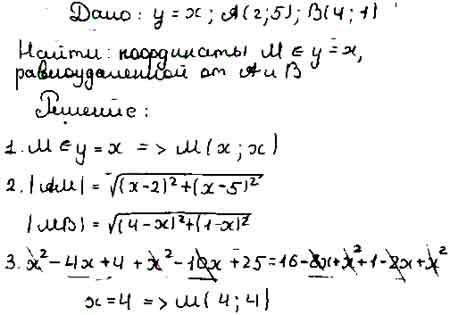 Дано: y = x; A(2;5); B(4;1)
Найти: координаты M ∈ y = x,
равноудаленной от A и B
Решение:
1. M ∈ y = x => M(x; x)
2. |AM| = √((x-2)²+(x-5)²)
|MB| = √((4-x)²+(1-x)²)
3. x² - 4x + 4 + x² - 10x + 25 = 16 - 8x + x² + 1 - 2x + x²
x = 4 => M(4; 4)